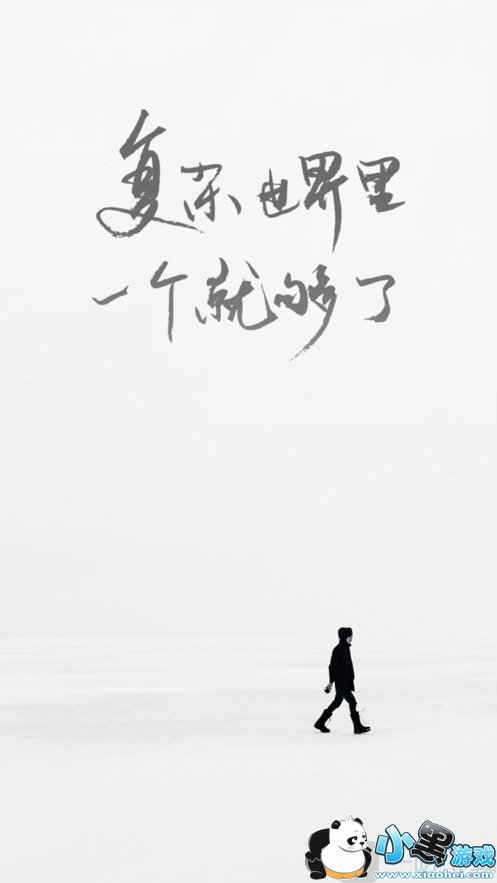 复杂世界里
一个就够了
小黑游戏
www.xiaohei.com